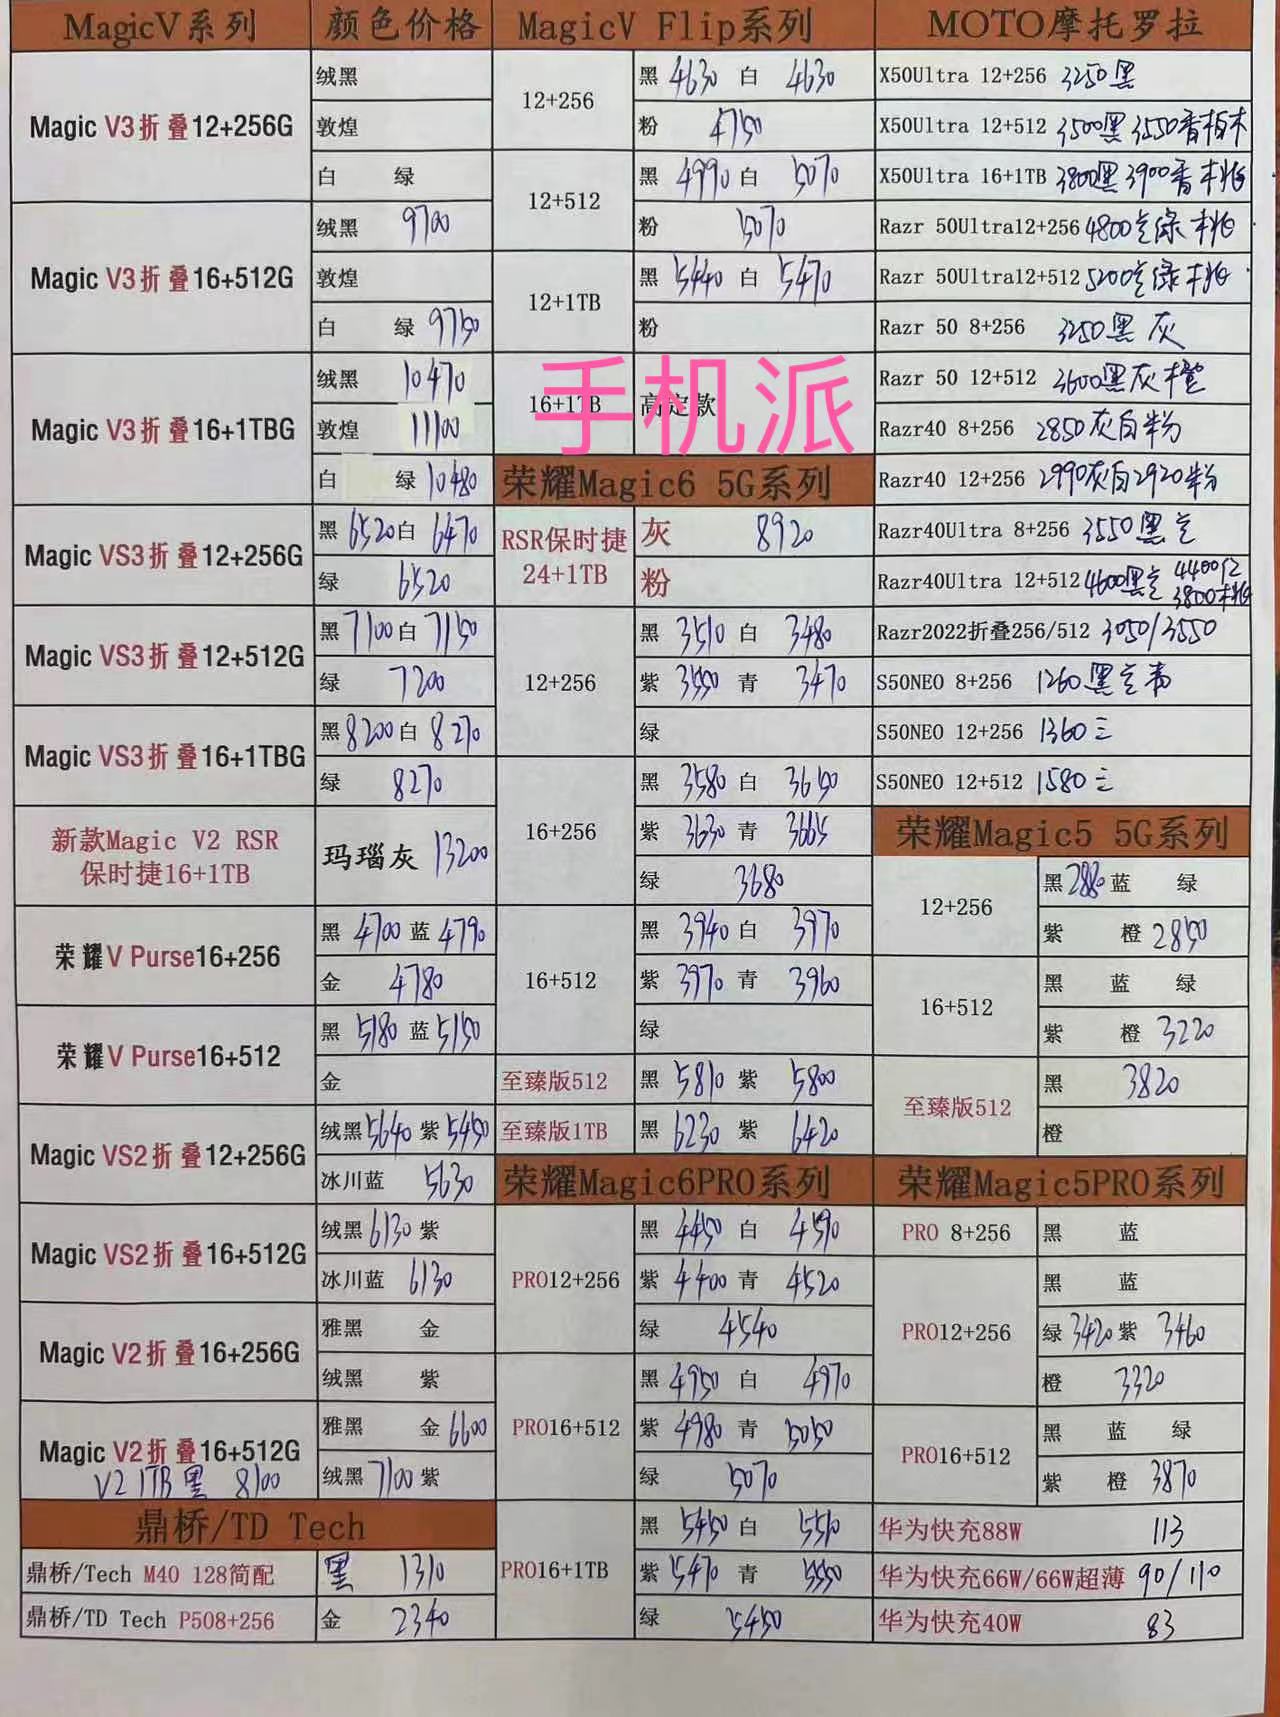 MagicV系列 颜色价格
Magic V3折叠12+256G
绒黑
敦煌
白 绿
Magic V3折叠16+512G
绒黑 9700
敦煌
白 绿 9750
Magic V3折叠16+1TBG
绒黑 10470
敦煌 11100
白 绿 10480
Magic VS3折叠12+256G
黑 6520 白 6470
绿 6520
Magic VS3折叠12+512G
黑 7100 白 7150
绿 7200
Magic VS3折叠16+1TBG
黑 8200 白 8270
绿 8270
新款Magic V2 RSR
保时捷16+1TB
玛瑙灰 13200
荣耀V Purse16+256
黑 4700 蓝 4790
金 4780
荣耀V Purse16+512
黑 5180 蓝 5150
金
Magic VS2折叠12+256G
绒黑 5640 紫 5450
冰川蓝 5630
Magic VS2折叠16+512G
绒黑 6130 紫
冰川蓝 6130
Magic V2折叠16+256G
雅黑 金
绒黑 紫
Magic V2折叠16+512G
V2 1TB 黑 8100
雅黑 金 6600
绒黑 7100 紫
鼎桥/TD Tech
鼎桥/Tech M40 128简配 黑 1310
鼎桥/TD Tech P508+256 金 2340
MagicV Flip系列
12+256
黑 4630 白 4630
粉 4750
12+512
黑 4990 白 5070
粉 5070
12+1TB
黑 5440 白 5470
粉
16+1TB 高定款
手机派
荣耀Magic6 5G系列
RSR保时捷
24+1TB
灰 8920
粉
12+256
黑 3510 白 3480
紫 3550 青 3470
绿
16+256
黑 3580 白 3650
紫 3630 青 3665
绿 3680
16+512
黑 3940 白 3970
紫 3970 青 3960
绿
至臻版512 黑 5810 紫 5800
至臻版1TB 黑 6230 紫 6420
荣耀Magic6PRO系列
PRO12+256
黑 4450 白 4590
紫 4400 青 4520
绿 4540
PRO16+512
黑 4950 白 4970
紫 4980 青 5050
绿 5070
PRO16+1TB
黑 5450 白 5510
紫 5470 青 5550
绿 5450
MOTO摩托罗拉
X50Ultra 12+256 3250黑
X50Ultra 12+512 3500黑 3550香柏木
X50Ultra 16+1TB 3800黑 3900香 桃
Razr 50Ultra12+256 4800兰绿 桃
Razr 50Ultra12+512 5200兰绿 桃
Razr 50 8+256 3250黑 灰
Razr 50 12+512 3600黑灰橙
Razr40 8+256 2850灰白粉
Razr40 12+256 2990灰白2920粉
Razr40Ultra 8+256 3550黑 兰
Razr40Ultra 12+512 4600黑兰 4400红 3800桃
Razr2022折叠256/512 3050/3550
S50NEO 8+256 1260黑兰青
S50NEO 12+256 1360 三
S50NEO 12+512 1580 三
荣耀Magic5 5G系列
12+256
黑 2880 蓝 绿
紫 橙 2850
16+512
黑 蓝 绿
紫 橙 3220
至臻版512
黑 3820
橙
荣耀Magic5PRO系列
PRO 8+256 黑 蓝
PRO12+256
黑 蓝
绿 3420 紫 3460
橙 3320
PRO16+512
黑 蓝 绿
紫 橙 3870
华为快充88W 113
华为快充66W/66W超薄 90/110
华为快充40W 83